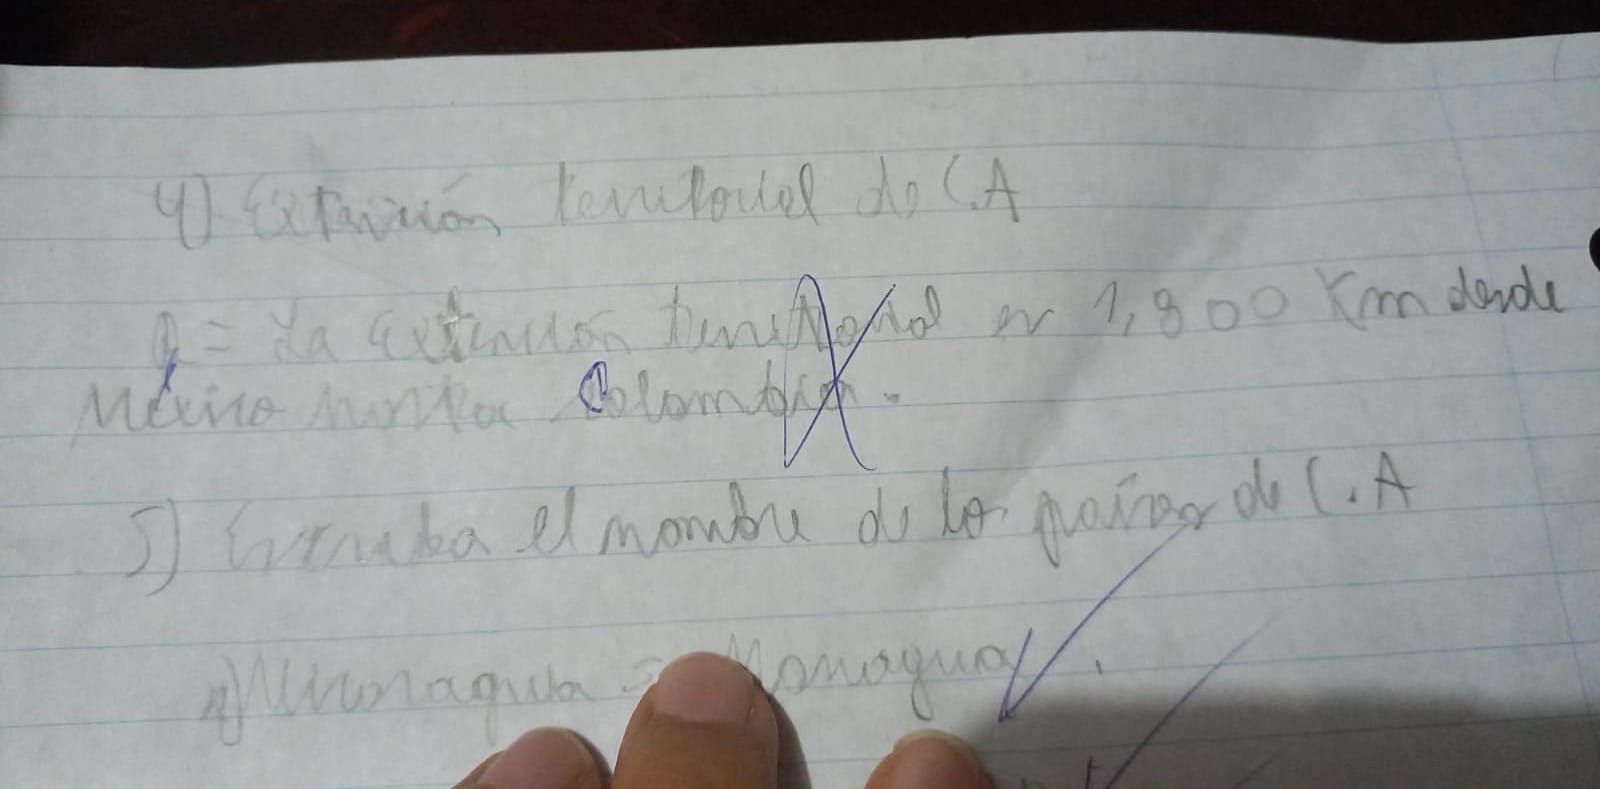 4) Extención territorial de C.A
R= La Extención territorial es 1,800 Km desde
México hasta Colombia.
5) Escriba el nombre de los países de C.A
Nicaragua = Managua.